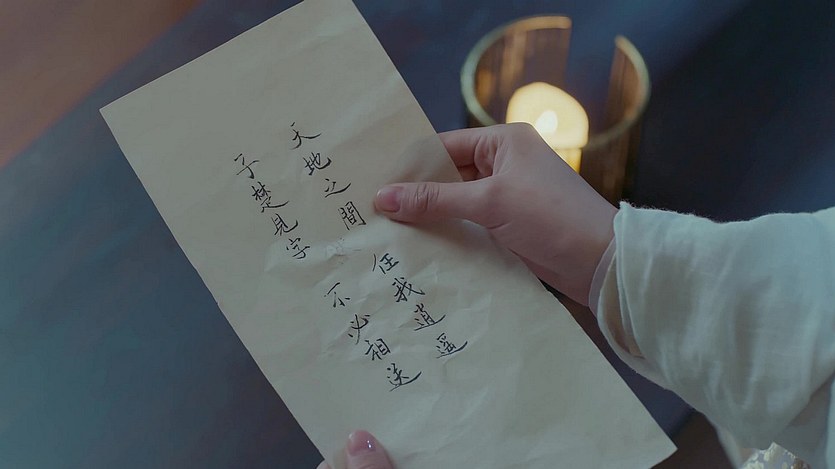 天地之間 任我逍遙
子楚見字 不必相送